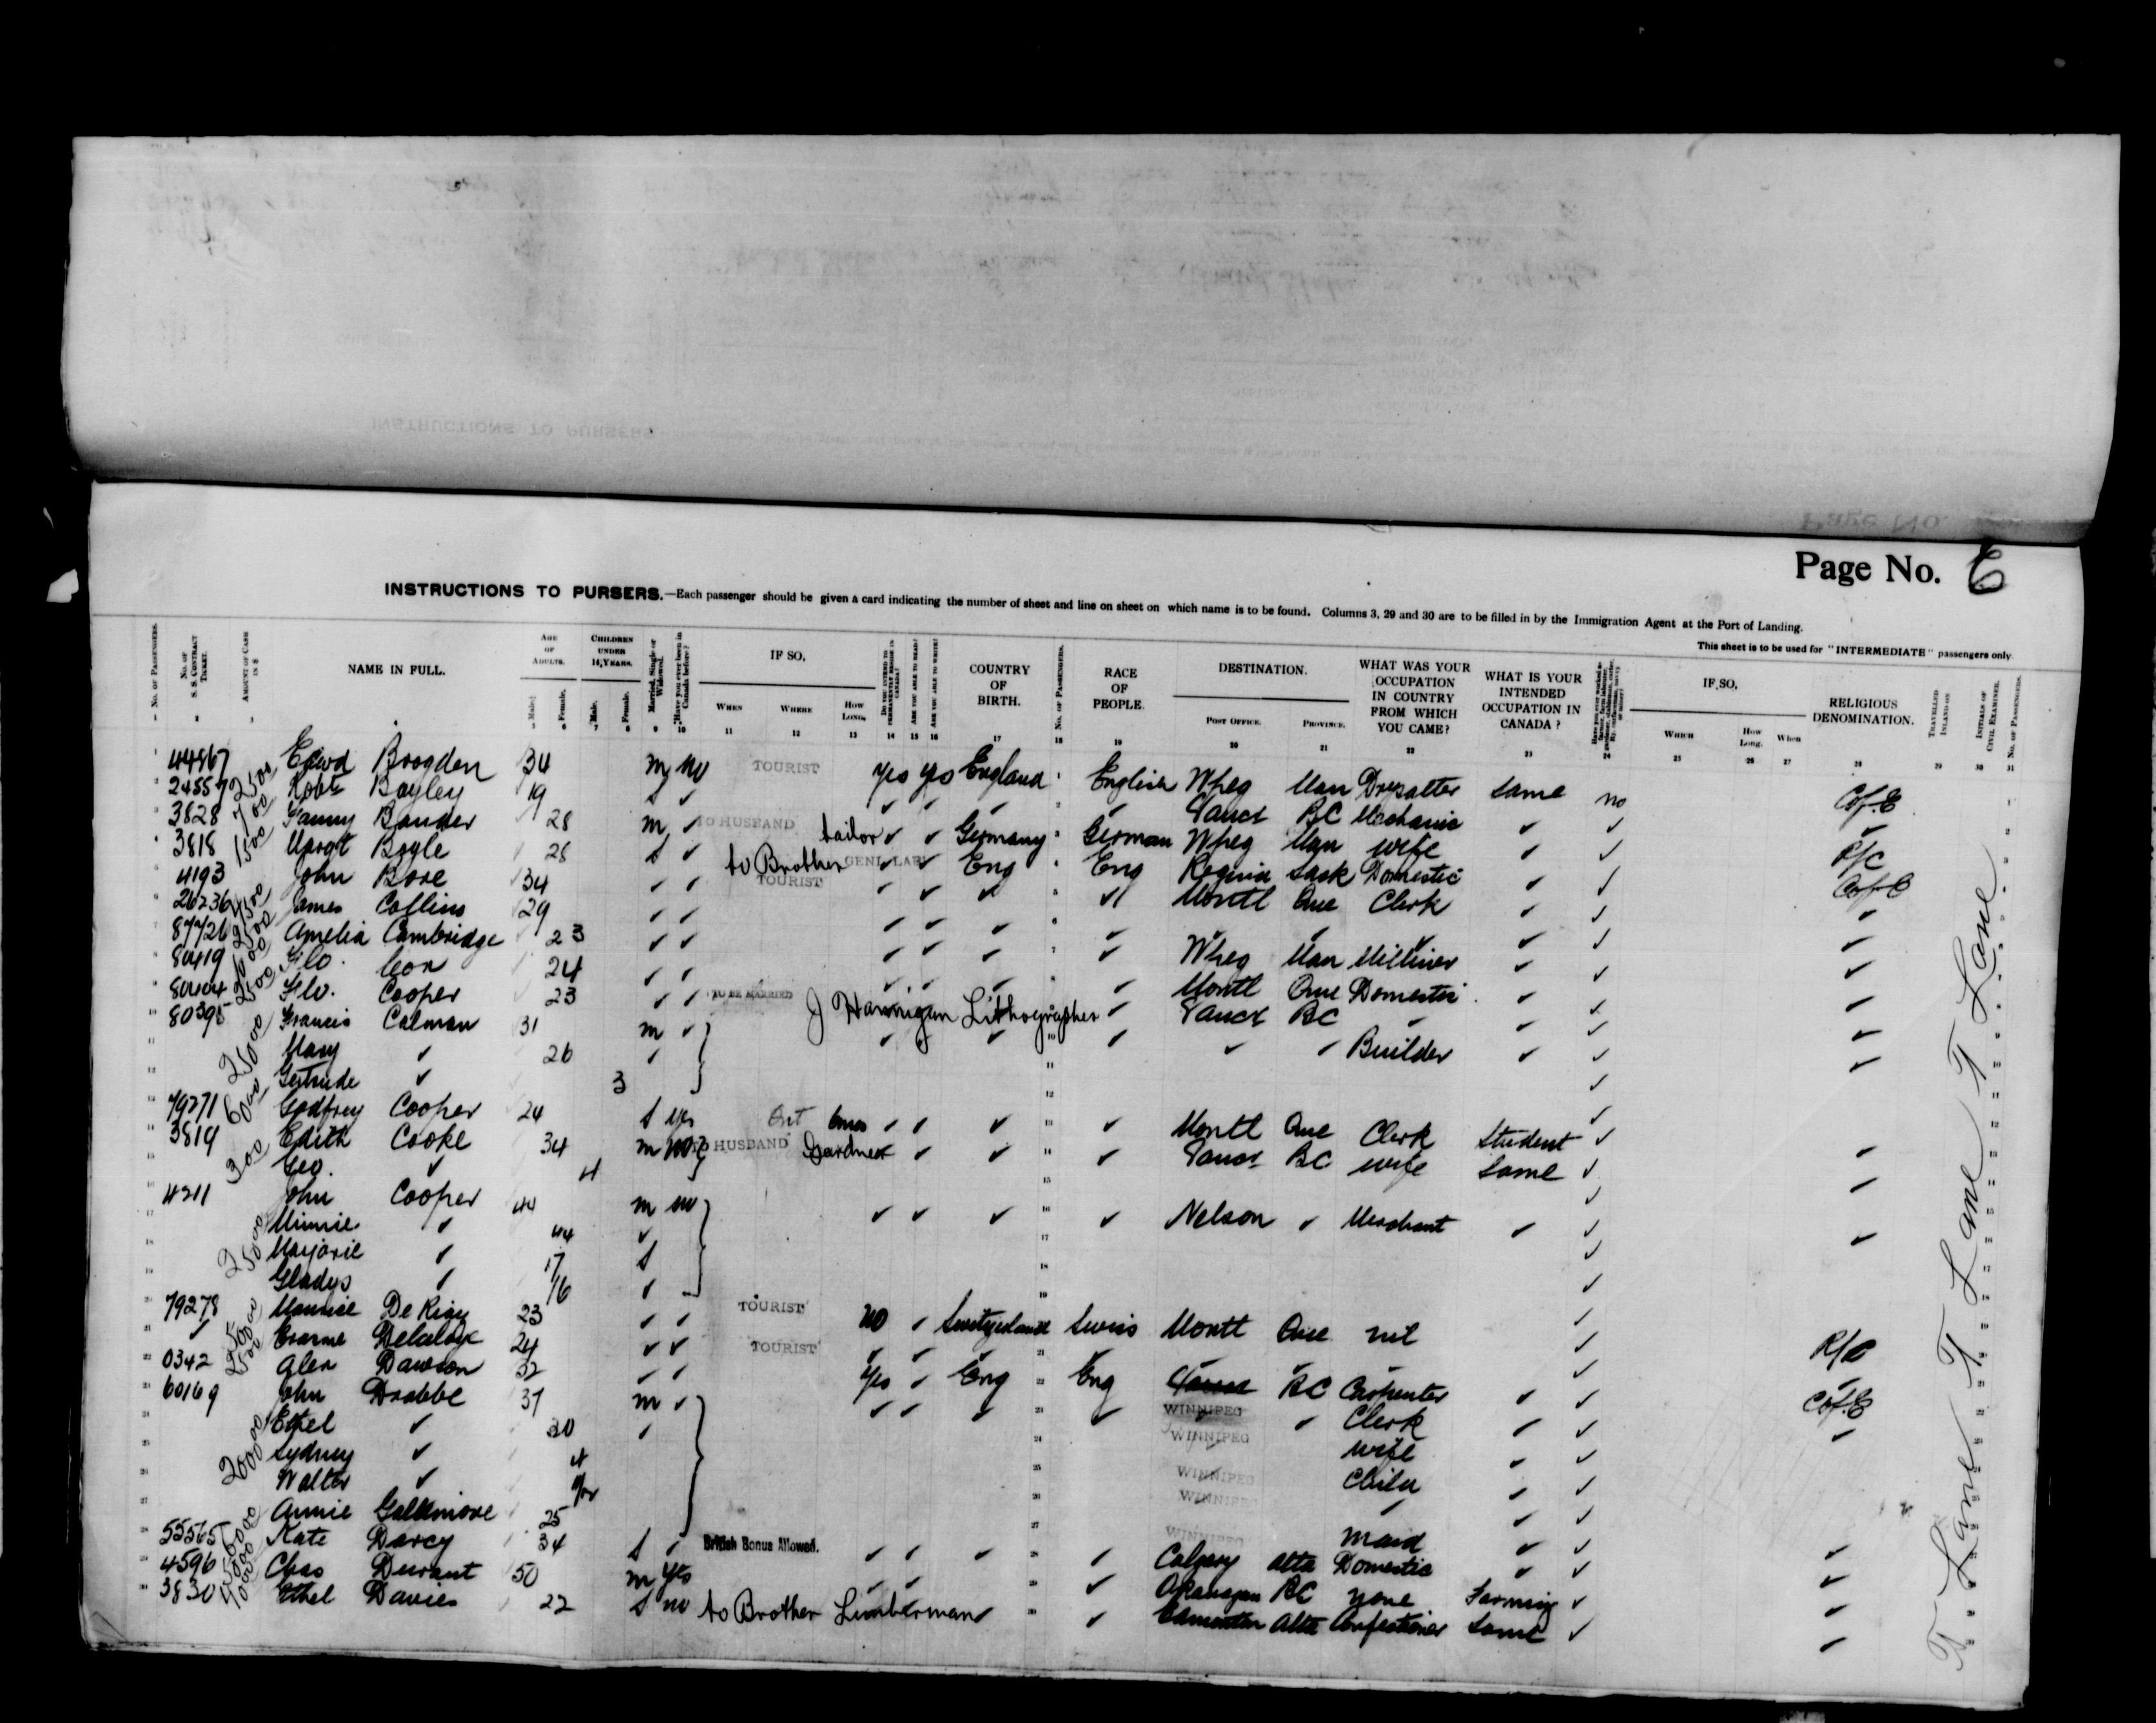 Page No. 6
INSTRUCTIONS TO PURSERS.—Each passenger should be given a card indicating the number of sheet and line on sheet on which name is to be found. Columns 3, 29 and 30 are to be filled in by the Immigration Agent at the Port of Landing.
This sheet is to be used for "INTERMEDIATE" passengers only.
No. of Passengers. No. of S. S. Contract Ticket. Amount of Cash in $ NAME IN FULL. Age of Adults. Male. Female. Children under 14 Years. Male. Female. Married, Single or Widowed. Have you ever been in Canada before? IF SO, When Where How Long. Do you intend to permanently reside in Canada? Are you able to read? Are you able to write? COUNTRY OF BIRTH. No. of Passengers. RACE OF PEOPLE. DESTINATION. Post Office. Province. WHAT WAS YOUR OCCUPATION IN COUNTRY FROM WHICH YOU CAME? WHAT IS YOUR INTENDED OCCUPATION IN CANADA? IF SO, Which How Long. When RELIGIOUS DENOMINATION. Travelled Inland on Initials of Civil Examiner. No. of Passengers.
44867 Edwd Brogden 34 m no TOURIST yes yes England English Wpeg Man Drysalter same no C of E
24557 2500 Robt Bayley 19 s ✓ ✓ ✓ ✓ ✓ Vancr BC Mechanic ✓ ✓ ✓
3828 700 Fanny Bander 28 m ✓ TO HUSBAND tailor ✓ ✓ Germany German Wpeg Man wife ✓ ✓ R/C
3818 1500 Margt Boyle 28 s ✓ to Brother GENL LAB ✓ ✓ Eng Eng Regina Sask Domestic ✓ ✓ C of E
4193 John Bore 34 ✓ ✓ TOURIST ✓ ✓ ✓ ✓ Montl Que Clerk ✓ ✓ ✓
26236 2500 James Collins 29 ✓ ✓ ✓ ✓ ✓ ✓ ✓ ✓ ✓ ✓ ✓ ✓
87426 2500 Amelia Cambridge 23 ✓ ✓ ✓ ✓ ✓ ✓ Wpeg Man Milliner ✓ ✓ ✓
80419 Flo. Cox 24 ✓ ✓ ✓ ✓ ✓ ✓ Montl Que Domestic ✓ ✓ ✓
80404 2500 Flo. Cooper 23 ✓ ✓ TO BE MARRIED J Hannigan Lithographer ✓ Vancr BC ✓ ✓ ✓ ✓
80395 Francis Calman 31 m ✓ ✓ ✓ ✓ ✓ ✓ ✓ Builder ✓ ✓ ✓
25000 Mary ✓ 26 ✓ ✓
Gertrude ✓ 3 ✓
79271 6000 Godfrey Cooper 24 s yes Ont ✓ ✓ ✓ ✓ Montl Que Clerk Student ✓ ✓
3819 Edith Cooke 34 m no TO HUSBAND Gardner ✓ ✓ ✓ Vancr BC wife same ✓ ✓
300 Geo. ✓ 4 ✓
4211 John Cooper 44 m no ✓ ✓ ✓ ✓ Nelson ✓ Merchant ✓ ✓ ✓
Minnie ✓ 44 ✓ ✓
25000 Marjorie ✓ 17 s ✓
Gladys ✓ 16 ✓ ✓
79278 Maurice De Rigy 23 ✓ ✓ TOURIST no ✓ Switzerland Swiss Montl Que nil ✓ R/C
✓ Delaloye 24 ✓ ✓ TOURIST ✓ ✓ ✓ ✓ ✓ ✓ ✓ ✓
0342 2500 Alex Dawson 32 ✓ ✓ yes ✓ Eng Eng Vancr BC Carpenter ✓ ✓ C of E
60169 John Drabbe 37 m ✓ ✓ ✓ ✓ ✓ WINNIPEG ✓ Clerk ✓ ✓ ✓
Ethel ✓ 30 ✓ WINNIPEG wife ✓ ✓
Sydney ✓ 4 WINNIPEG Child ✓ ✓
Walter ✓ WINNIPEG ✓ ✓ ✓
Annie Goldmore 25 WINNIPEG maid ✓ ✓
55565 6000 Kate Darcy 34 s ✓ British Bonus Allowed. ✓ ✓ ✓ ✓ Calgary Alta Domestic ✓ ✓ ✓
4596 Chas Durant 50 m yes ✓ ✓ ✓ Okanagan BC none Farming ✓ ✓
3830 1000 Ethel Davies 22 s no to Brother Limberman ✓ ✓ Edmonton Alta Confectioner same ✓ ✓
T Lane T Lane T Lane T Lane